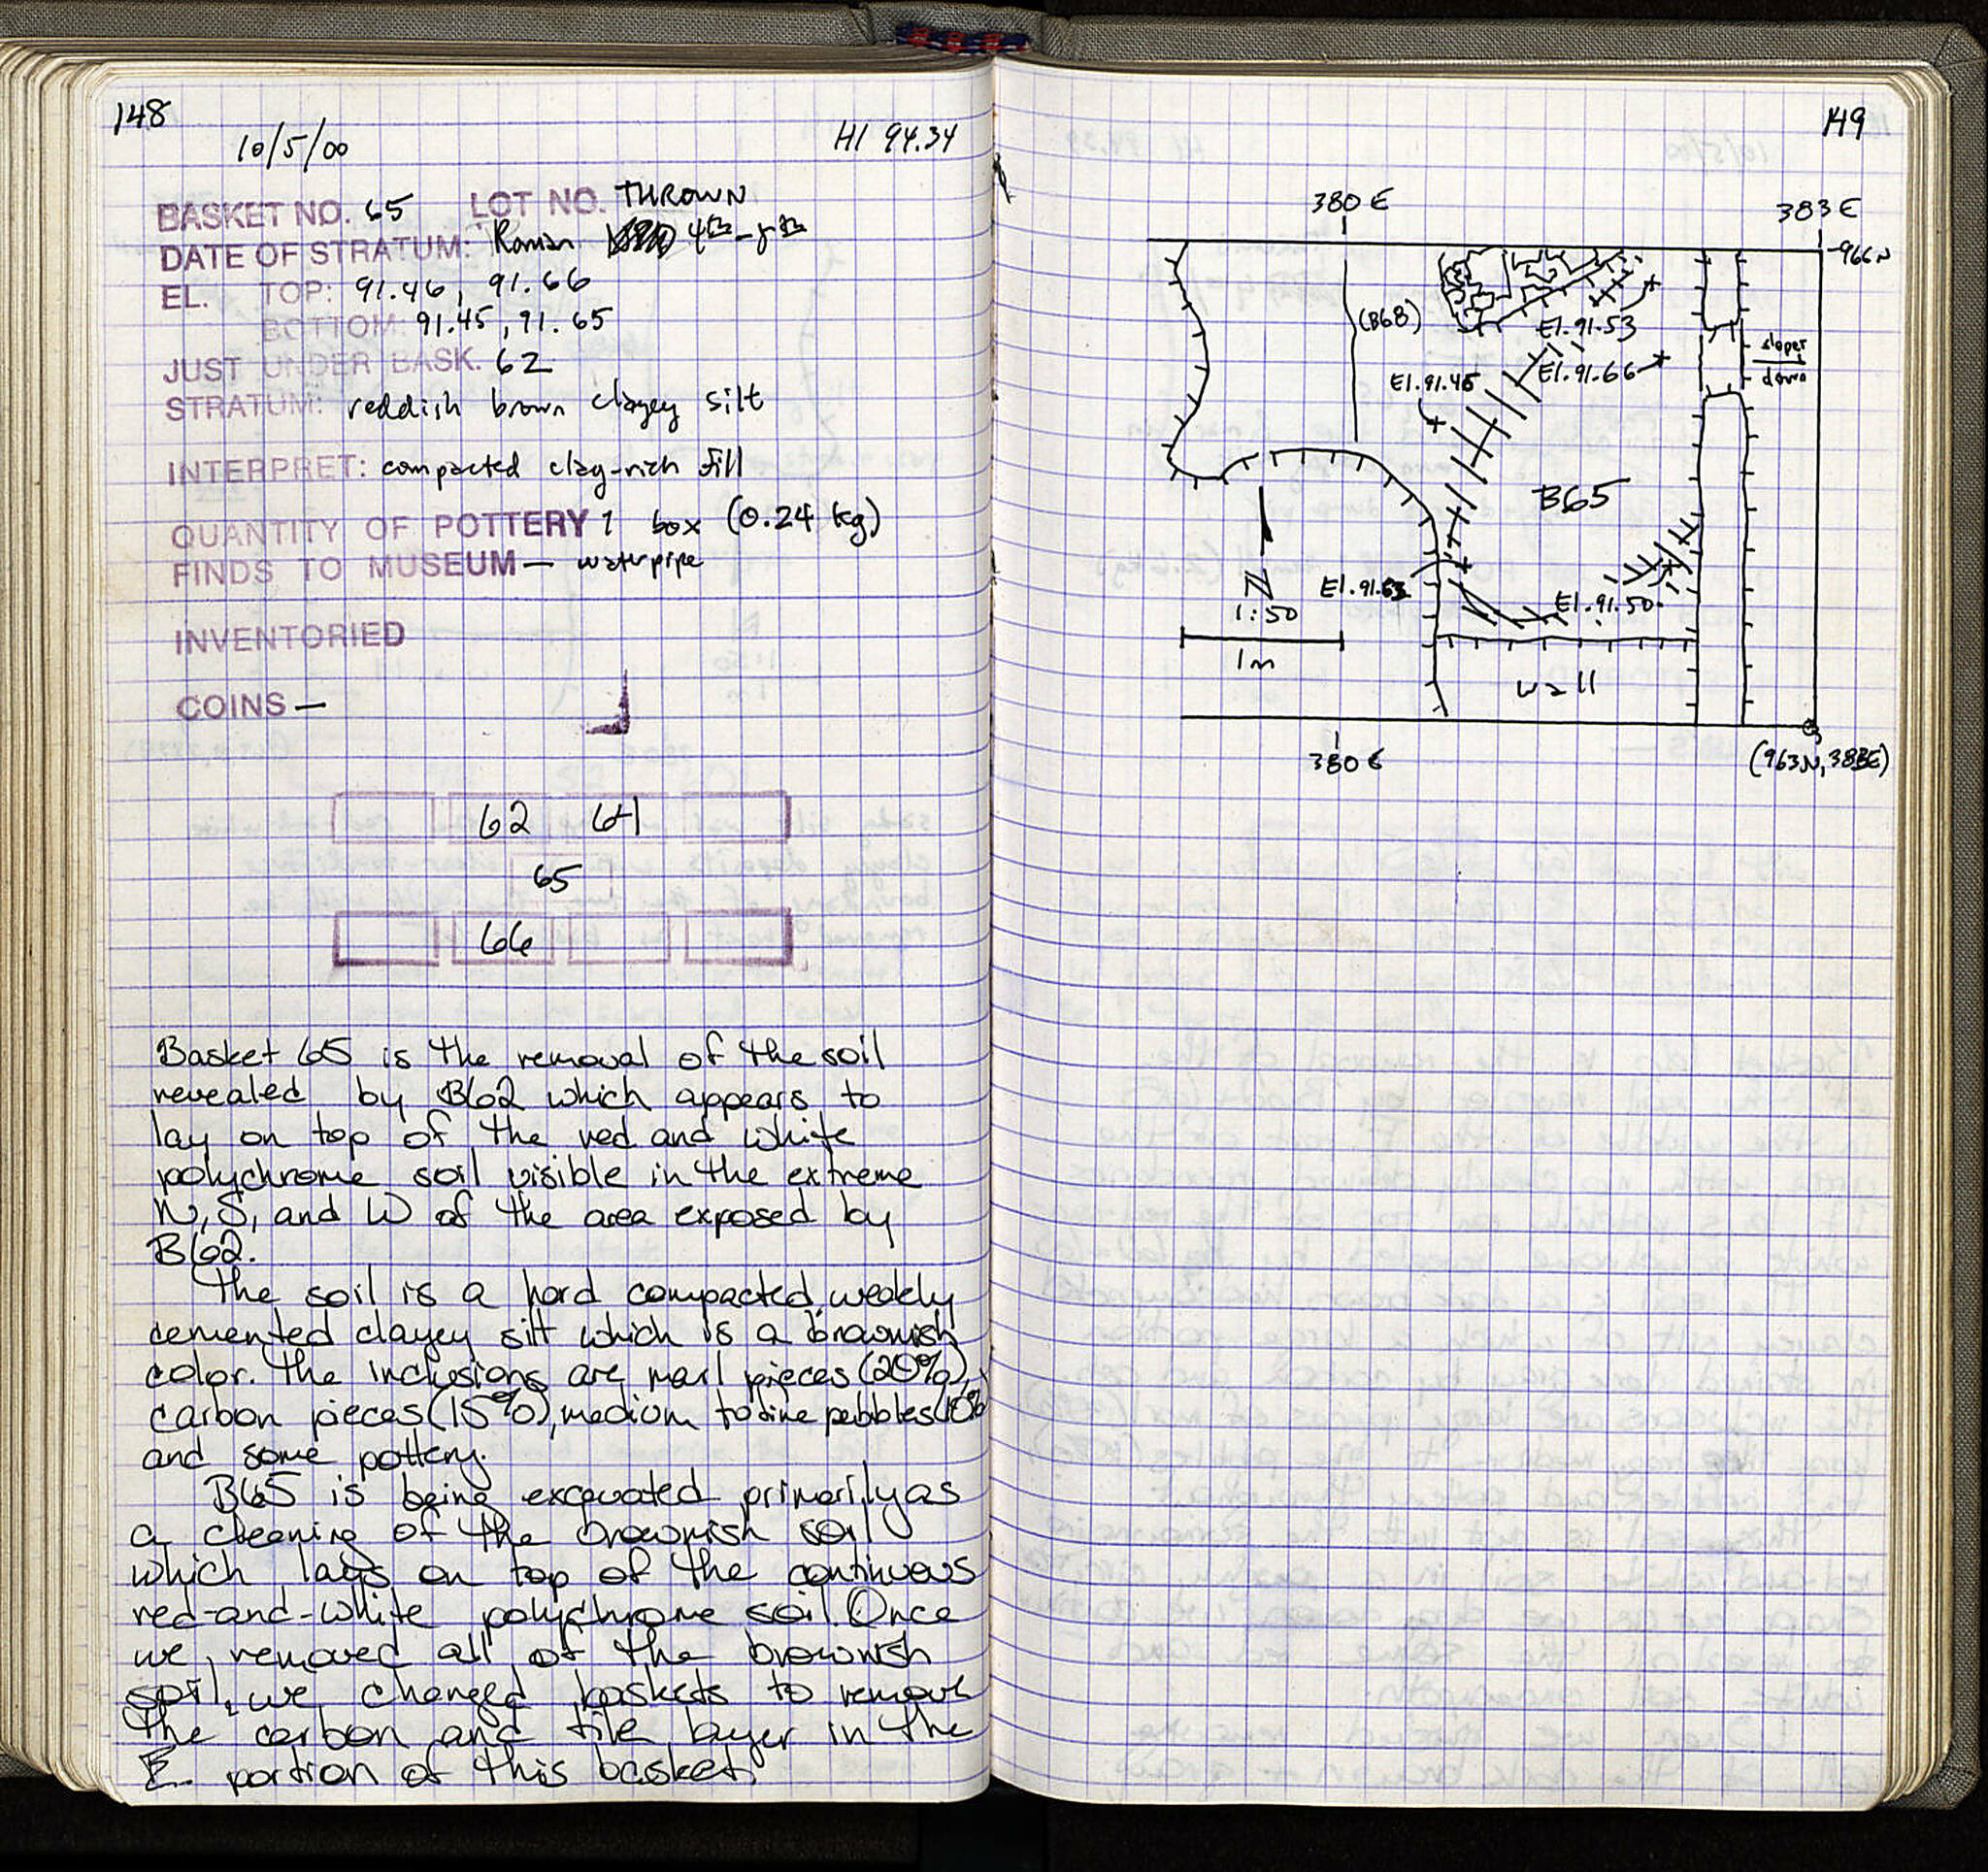 148
10/5/00
HI 94.34
BASKET NO. 65 LOT NO. THROWN
DATE OF STRATUM: Roman 4th-
EL. TOP: 91.46, 91.66
BOTTOM: 91.45, 91.65
JUST UNDER BASK. 62
STRATUM: reddish brown clayey silt
INTERPRET: compacted clay-rich fill
QUANTITY OF POTTERY 1 box (0.24 kg)
FINDS TO MUSEUM — waterpipe
INVENTORIED
COINS —
62 64
65
66
Basket 65 is the removal of the soil
revealed by B62 which appears to
lay on top of the red and white
polychrome soil visible in the extreme
N, S, and W of the area exposed by
B62.
The soil is a hard compacted, weakly
cemented clayey silt which is a brownish
color. The inclusions are marl pieces (20%),
carbon pieces (15%), medium to fine pebbles (10%
and some pottery.
B65 is being excavated primarily as
a cleaning of the brownish soil
which lays on top of the continuous
red-and-white polychrome soil. Once
we removed all of the brownish
soil, we changed baskets to remove
the carbon and tile layer in the
E portion of this basket.
149
380 E
383 E
966N
(B68)
El. 91.53
El. 91.66
slopes
down
El. 91.45
B65
N
El. 91.
El. 91.50
1:50
1m
wall
380 E
(963N, 383E)